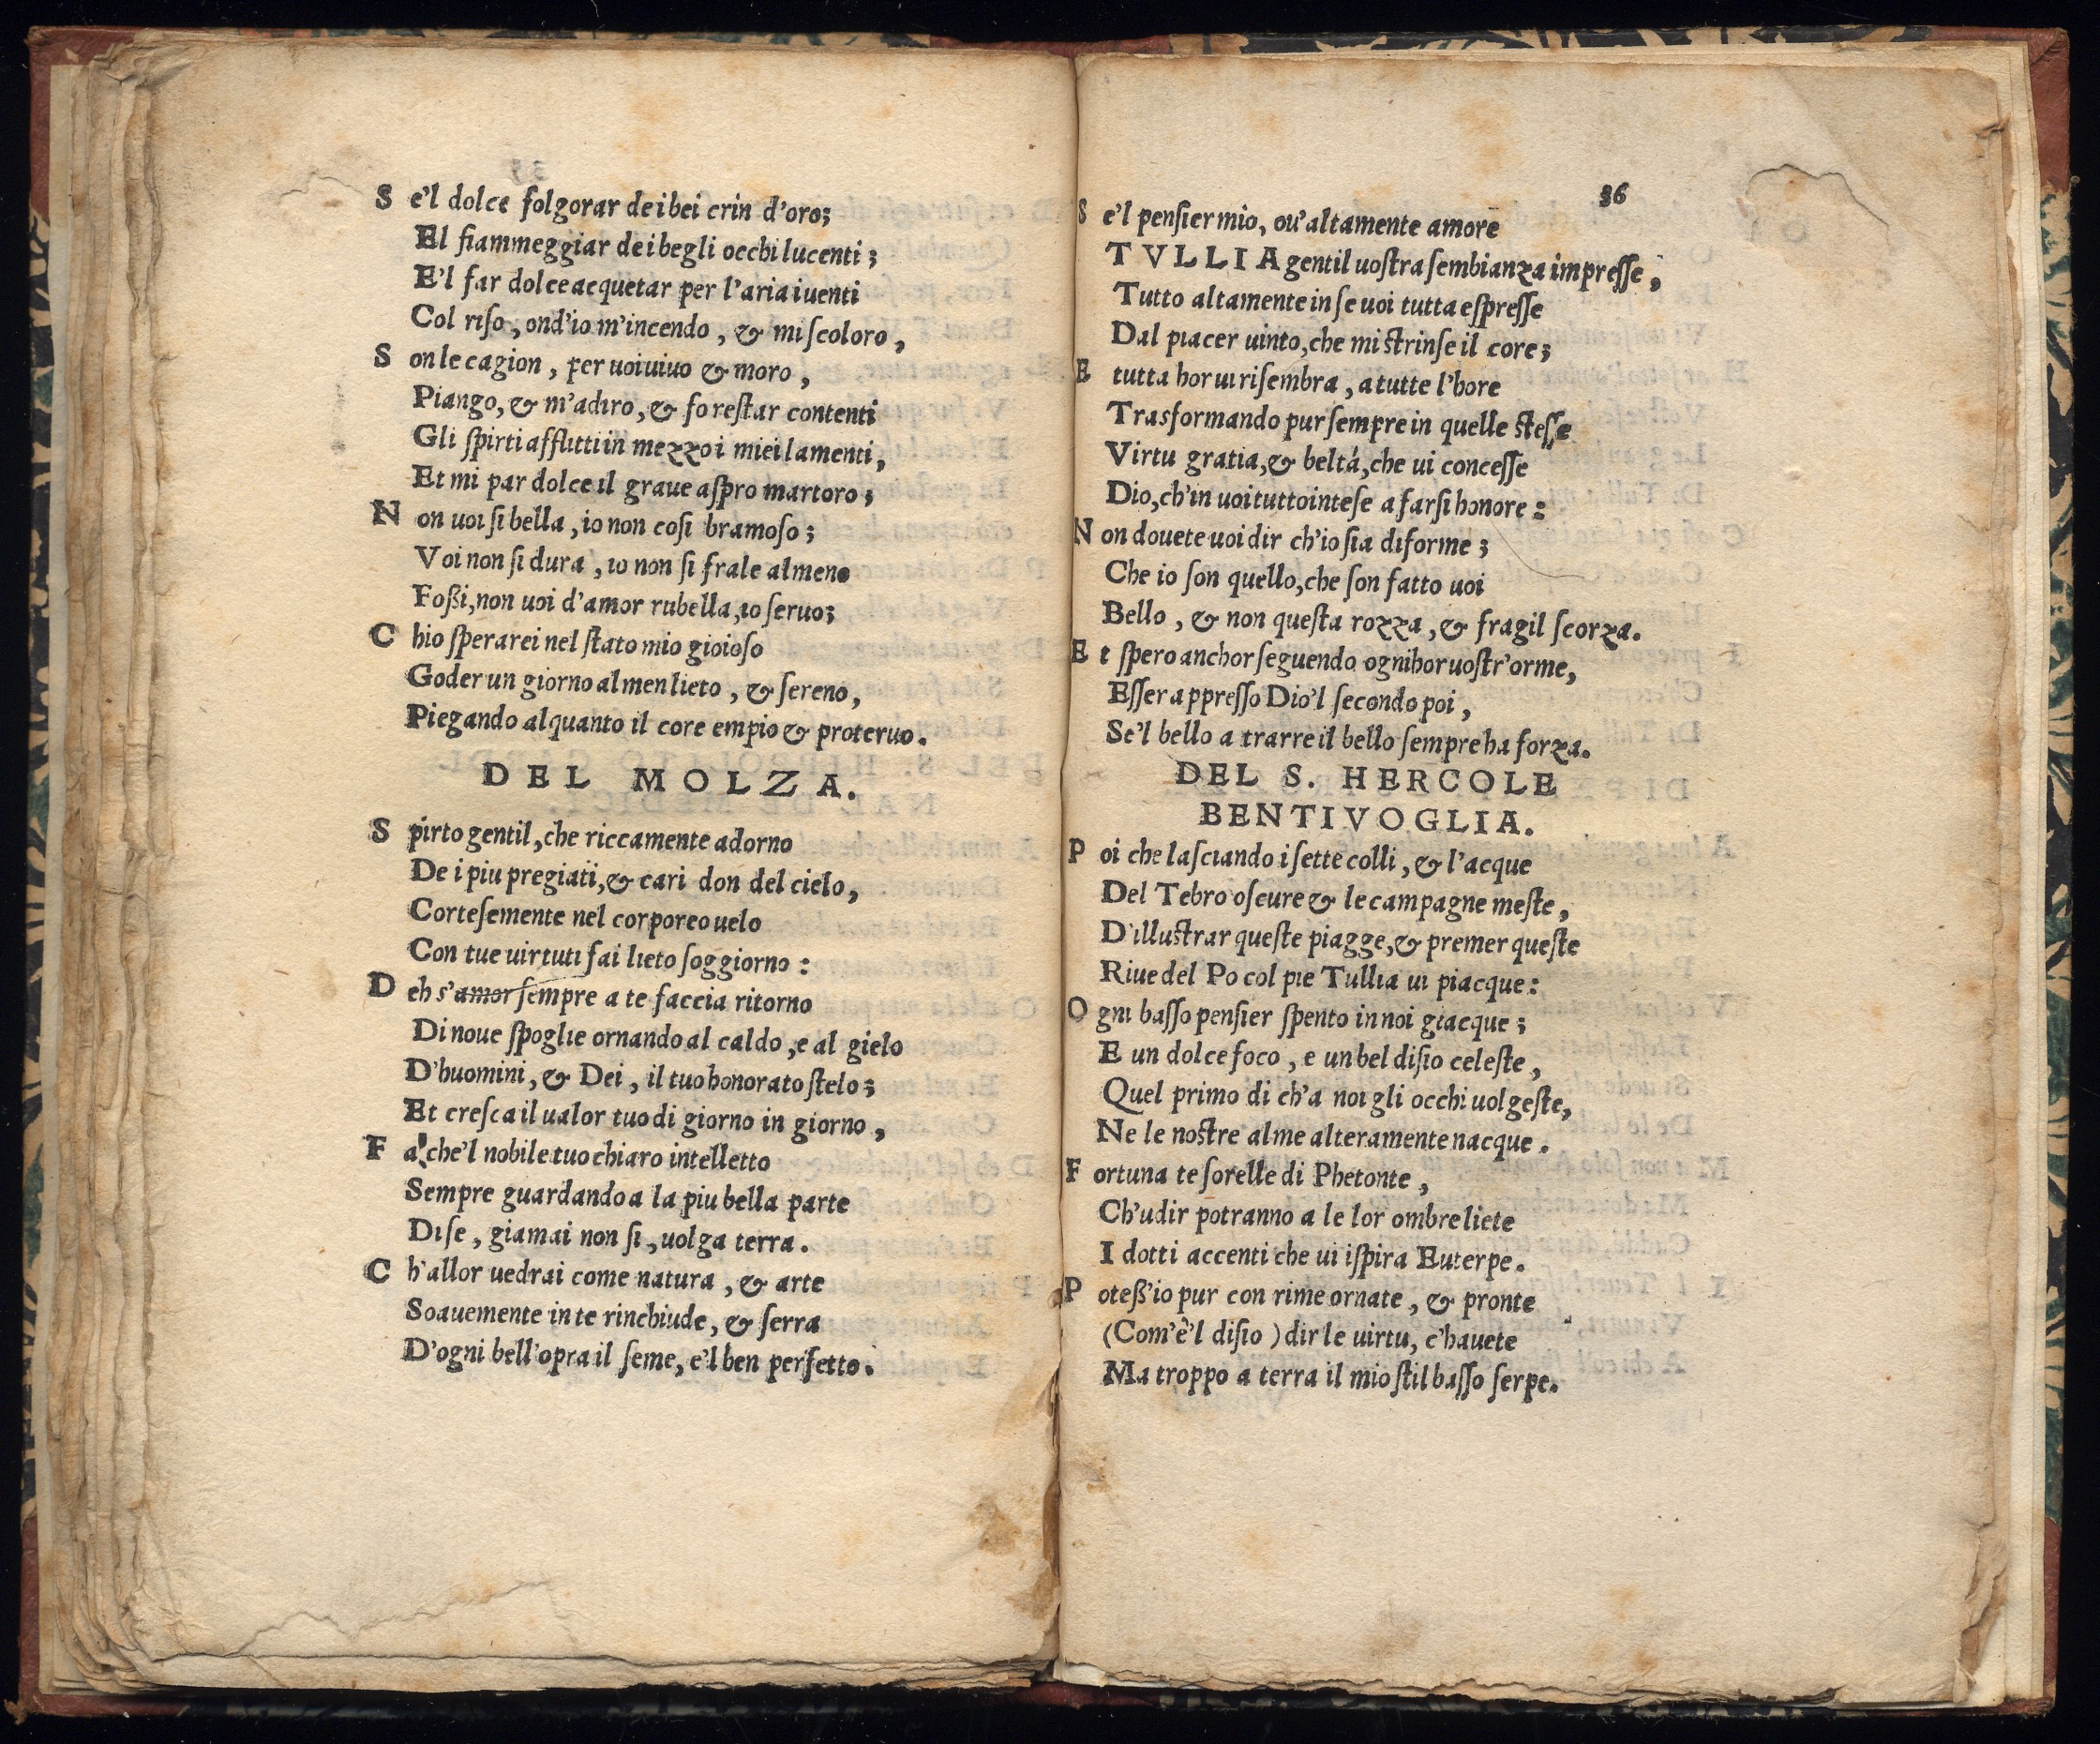 S e'l dolce folgorar de i bei crin d'oro;
El fiammeggiar de i begli occhi lucenti;
E'l far dolce acquetar per l'aria i uenti
Col riso, ond'io m'incendo, & mi scoloro,
S on le cagion, per uoi uiuo & moro,
Piango, & m'adiro, & fo restar contenti
Gli spirti afflitti in mezzo i miei lamenti,
Et mi par dolce il graue aspro martoro;
N on uoi si bella, io non cosi bramoso;
Voi non si dura, io non si frale almeno
Foßi, non uoi d'amor rubella, io seruo;
C hio sperarei nel stato mio gioioso
Goder un giorno almen lieto, & sereno,
Piegando alquanto il core empio & proteruo.
DEL MOLZA.
S pirto gentil, che riccamente adorno
De i piu pregiati, & cari don del cielo,
Cortesemente nel corporeo uelo
Con tue uirtuti fai lieto soggiorno:
D eh s'amor sempre a te faccia ritorno
Di noue spoglie ornando al caldo, e al gielo
D'huomini, & Dei, il tuo honorato stelo;
Et cresca il ualor tuo di giorno in giorno,
F a che'l nobile tuo chiaro intelletto
Sempre guardando a la piu bella parte
Di se, giamai non si, uolga terra.
C h'allor uedrai come natura, & arte
Soauemente in te rinchiude, & serra
D'ogni bell'opra il seme, e'l ben perfetto.
36
S e'l pensier mio, ou'altamente amore
TVLLIA gentil uostra sembianza impresse,
Tutto altamente in se uoi tutta espresse
Dal piacer uinto, che mi strinse il core;
E tutta hor ui risembra, a tutte l'hore
Trasformando pur sempre in quelle stesse
Virtu gratia, & beltá, che ui concesse
Dio, ch'in uoi tutto intese a farsi honore:
N on douete uoi dir ch'io sia diforme;
Che io son quello, che son fatto uoi
Bello, & non questa rozza, & fragil scorza.
E t spero anchor seguendo ogni hor uostr'orme,
Esser appresso Dio'l secondo poi,
Se'l bello a trarre il bello sempre ha forza.
DEL S. HERCOLE
BENTIVOGLIA.
P oi che lasciando i sette colli, & l'acque
Del Tebro oscure & le campagne meste,
D'illustrar queste piagge, & premer queste
Riue del Po col pie Tullia ui piacque:
O gni basso pensier spento in noi giacque;
E un dolce foco, e un bel disio celeste,
Quel primo di ch'a noi gli occhi uolgeste,
Ne le nostre alme alteramente nacque.
F ortuna te sorelle di Phetonte,
Ch'udir potranno a le lor ombre liete
I dotti accenti che ui ispira Euterpe.
P oteß'io pur con rime ornate, & pronte
(Com'è'l disio) dir le uirtu, c'hauete
Ma troppo a terra il mio stil basso serpe.